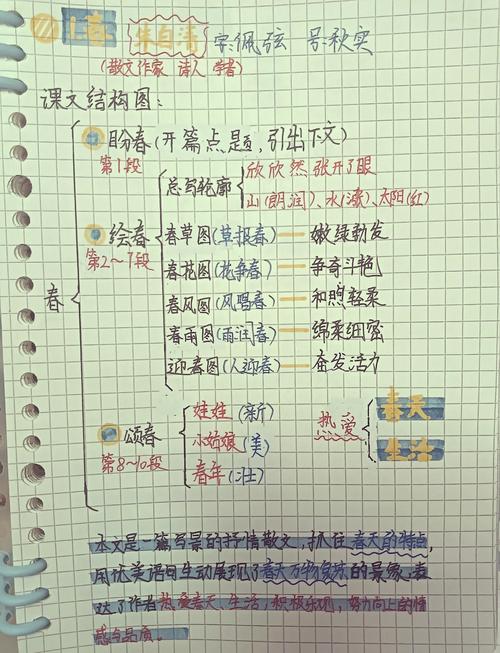 1.春 朱自清 字:佩弦 号:秋实
(散文作家 诗人 学者)
课文结构图:
春
盼春(开篇点题,引出下文)
第1段
绘春
第2~7段
总写轮廓
欣欣然张开了眼
山(朗润)、水(涨)、太阳(红)
春草图(草报春)——嫩绿勃发
春花图(花争春)——争奇斗艳
春风图(风唱春)——和煦轻柔
春雨图(雨润春)——绵柔细密
迎春图(人迎春)——奋发活力
颂春
第8~10段
娃娃(新)
小姑娘(美)
春年(壮)
热爱
春天
生活
本文是一篇写景的抒情散文,抓住春天的特点,
用优美语句生动展现了春天万物复苏的景象,表
达了作者热爱春天、生活,积极乐观,努力向上的情
感与品质。